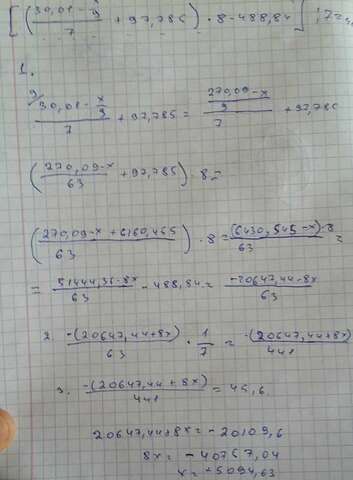 [((30,01 - x/9)/7 + 97,785) · 8 - 488,84] : 7 =
1.
9) (30,01 - x/9)/7 + 97,785 = ((270,09 - x)/9)/7 + 97,785
((270,09 - x)/63 + 97,785) · 8 =
((270,09 - x + 6160,455)/63) · 8 = ((6430,545 - x) · 8)/63 =
= (51444,36 - 8x)/63 - 488,84 = (-20647,44 - 8x)/63
2. -(20647,44 + 8x)/63 · 1/7 = -(20647,44 + 8x)/441
3. -(20647,44 + 8x)/441 = 45,6
20647,44 + 8x = -20109,6
8x = -40757,04
x = -5094,63